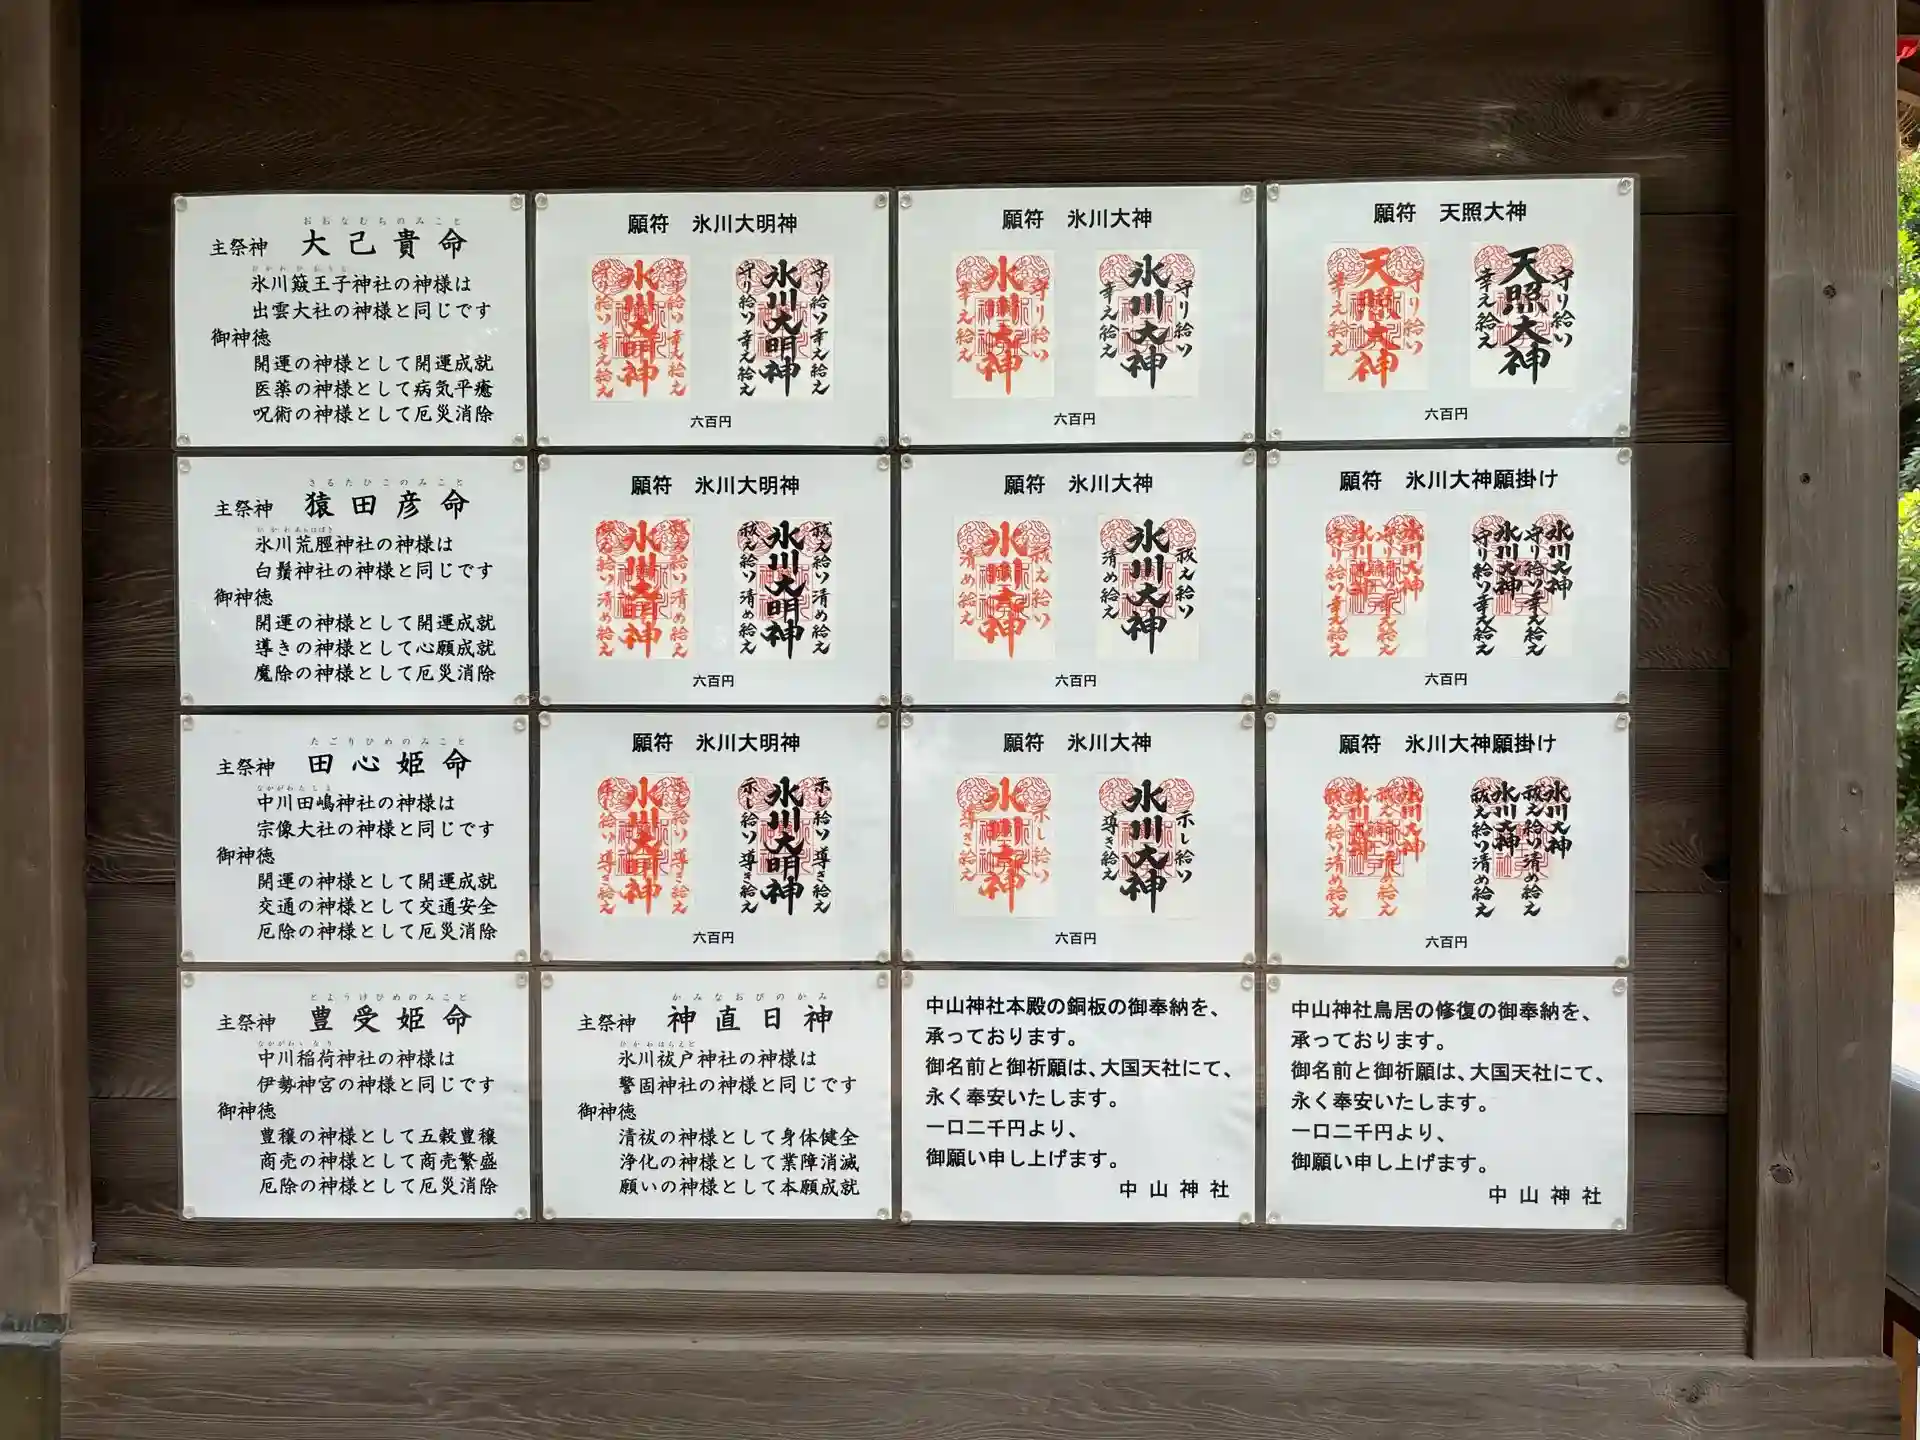 おおなむちのみこと
主祭神 大己貴命
ひかわかおうじ
氷川簸王子神社の神様は
出雲大社の神様と同じです
御神徳
開運の神様として開運成就
医薬の神様として病気平癒
呪術の神様として厄災消除
願符 氷川大明神
守り給い幸え給え
氷川大明神
守り給い幸え給え
守り給い幸え給え
氷川大明神
守り給い幸え給え
六百円
願符 氷川大神
守り給い
氷川大神
幸え給え
守り給い
氷川大神
幸え給え
六百円
願符 天照大神
守り給い
天照大神
幸え給え
守り給い
天照大神
幸え給え
六百円
さるたひこのみこと
主祭神 猿田彦命
ひかわあらはばき
氷川荒脛神社の神様は
白鬚神社の神様と同じです
御神徳
開運の神様として開運成就
導きの神様として心願成就
魔除の神様として厄災消除
願符 氷川大明神
祓え給い清め給え
氷川大明神
祓え給い清め給え
祓え給い清め給え
氷川大明神
祓え給い清め給え
六百円
願符 氷川大神
祓え給い
氷川大神
清め給え
祓え給い
氷川大神
清め給え
六百円
願符 氷川大神願掛け
氷川大神
守り給い幸え給え
氷川大神
守り給い幸え給え
氷川大神
守り給い幸え給え
氷川大神
守り給い幸え給え
六百円
たごりひめのみこと
主祭神 田心姫命
なかがわたじま
中川田嶋神社の神様は
宗像大社の神様と同じです
御神徳
開運の神様として開運成就
交通の神様として交通安全
厄除の神様として厄災消除
願符 氷川大明神
示し給い導き給え
氷川大明神
示し給い導き給え
示し給い導き給え
氷川大明神
示し給い導き給え
六百円
願符 氷川大神
示し給い
氷川大神
導き給え
示し給い
氷川大神
導き給え
六百円
願符 氷川大神願掛け
氷川大神
祓え給い清め給え
氷川大神
祓え給い清め給え
氷川大神
祓え給い清め給え
氷川大神
祓え給い清め給え
六百円
とようけひめのみこと
主祭神 豊受姫命
なかがわいなり
中川稲荷神社の神様は
伊勢神宮の神様と同じです
御神徳
豊穣の神様として五穀豊穣
商売の神様として商売繁盛
厄除の神様として厄災消除
かみなおびのかみ
主祭神 神直日神
ひかわはらえど
氷川祓戸神社の神様は
警固神社の神様と同じです
御神徳
清祓の神様として身体健全
浄化の神様として業障消滅
願いの神様として本願成就
中山神社本殿の銅板の御奉納を、
承っております。
御名前と御祈願は、大国天社にて、
永く奉安いたします。
一口二千円より、
御願い申し上げます。
中山神社
中山神社鳥居の修復の御奉納を、
承っております。
御名前と御祈願は、大国天社にて、
永く奉安いたします。
一口二千円より、
御願い申し上げます。
中山神社